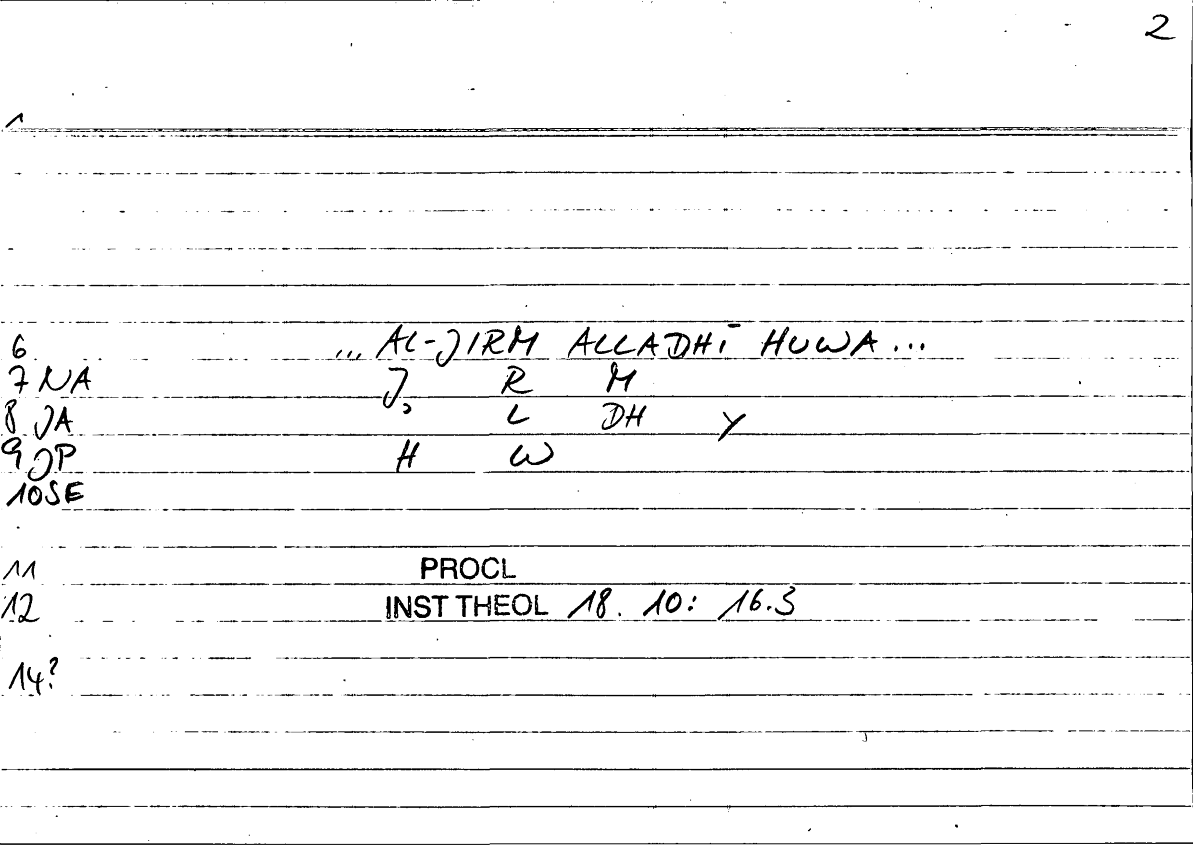 2
1
6 ... AL-JIRM ALLADHĪ HUWA ...
7 NA J, R M
8 JA L DH Y
9 JP H W
10 SE
11 PROCL
12 INST THEOL 18. 10: 16.3
14?